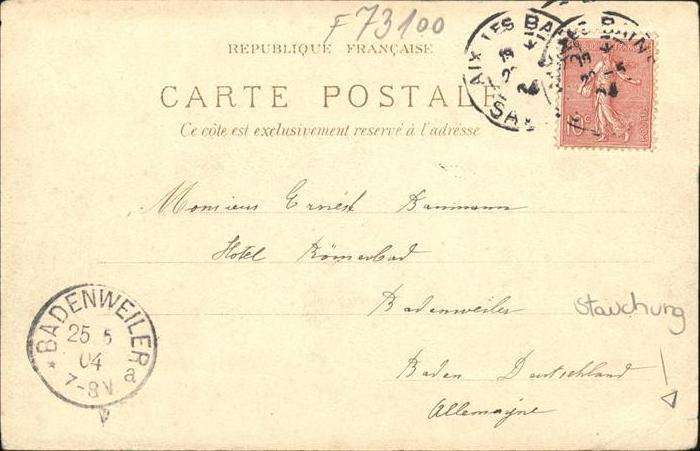 F 73100
RÉPUBLIQUE FRANÇAISE
CARTE POSTALE
Ce côté est exclusivement reservé à l'adresse
AIX LES BAINS
10
Monsieur Ernést Baumann
Hotel Römerbad
Badenweiler
Stauchung
Baden Deutschland
Allemagne
* BADENWEILER a
25 5
04
7-8V